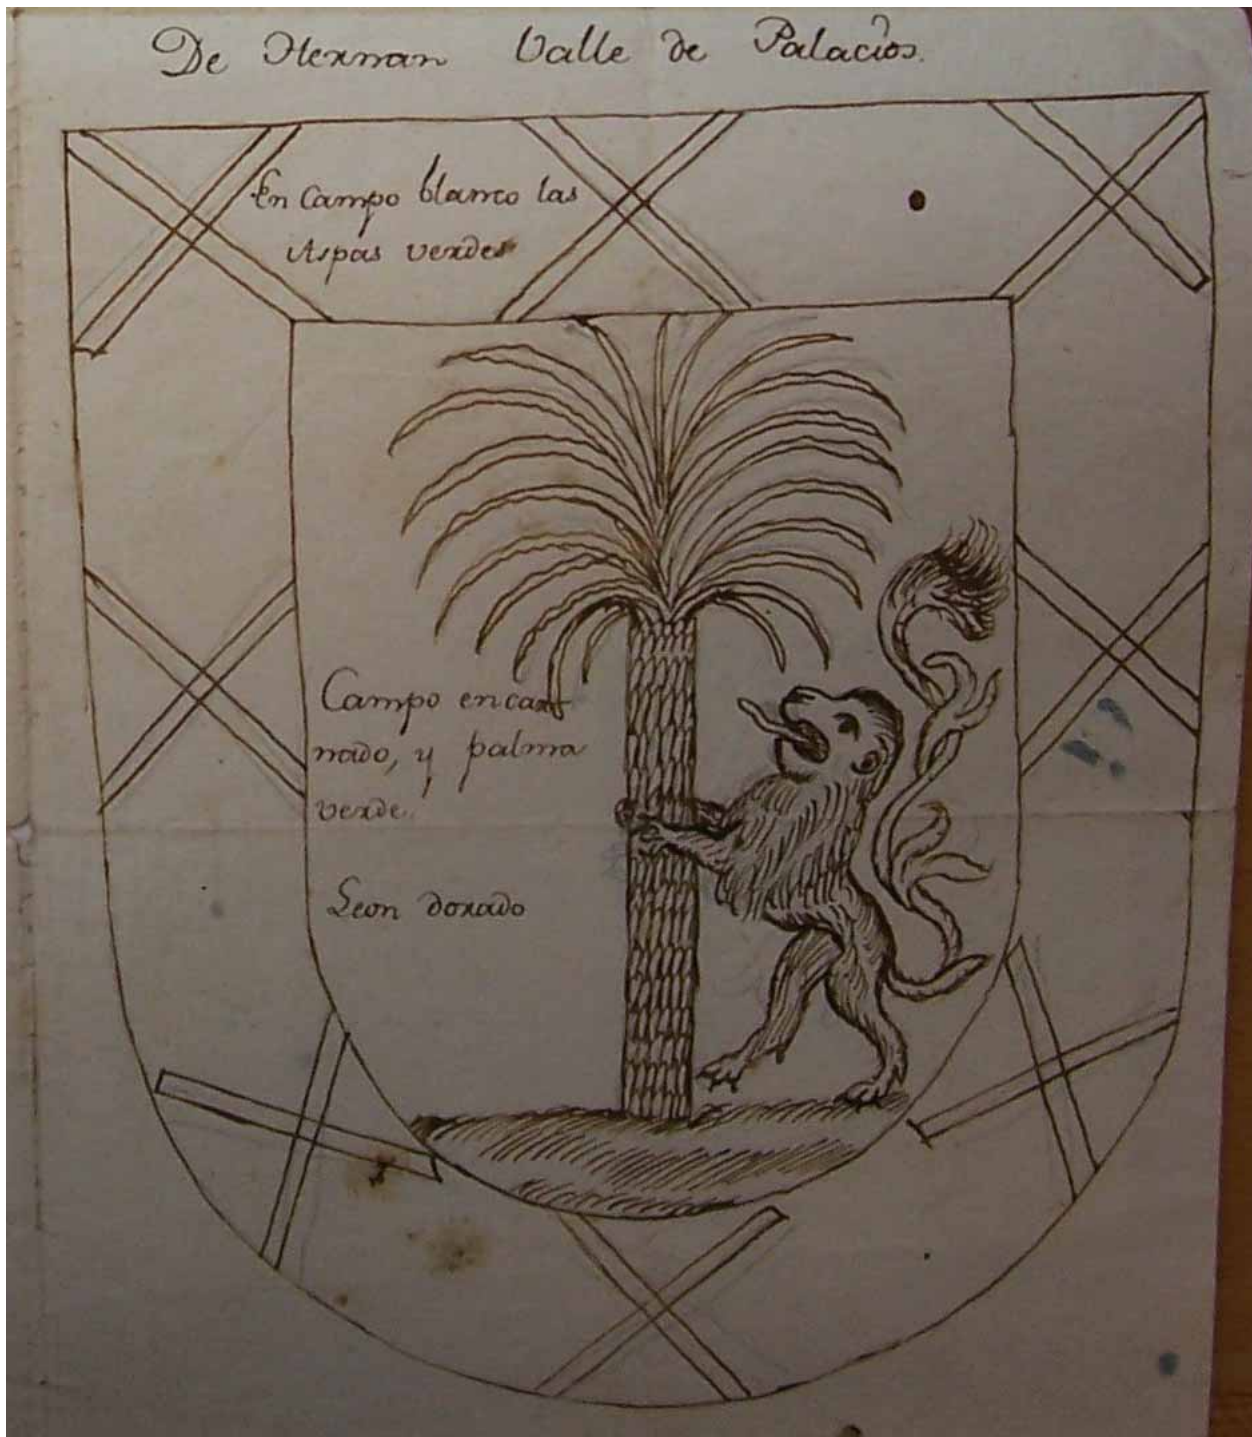 De Hernan Valle de Palacios.
En Campo blanco las
Aspas verdes
Campo encar
nado, y palma
verde.
Leon dorado